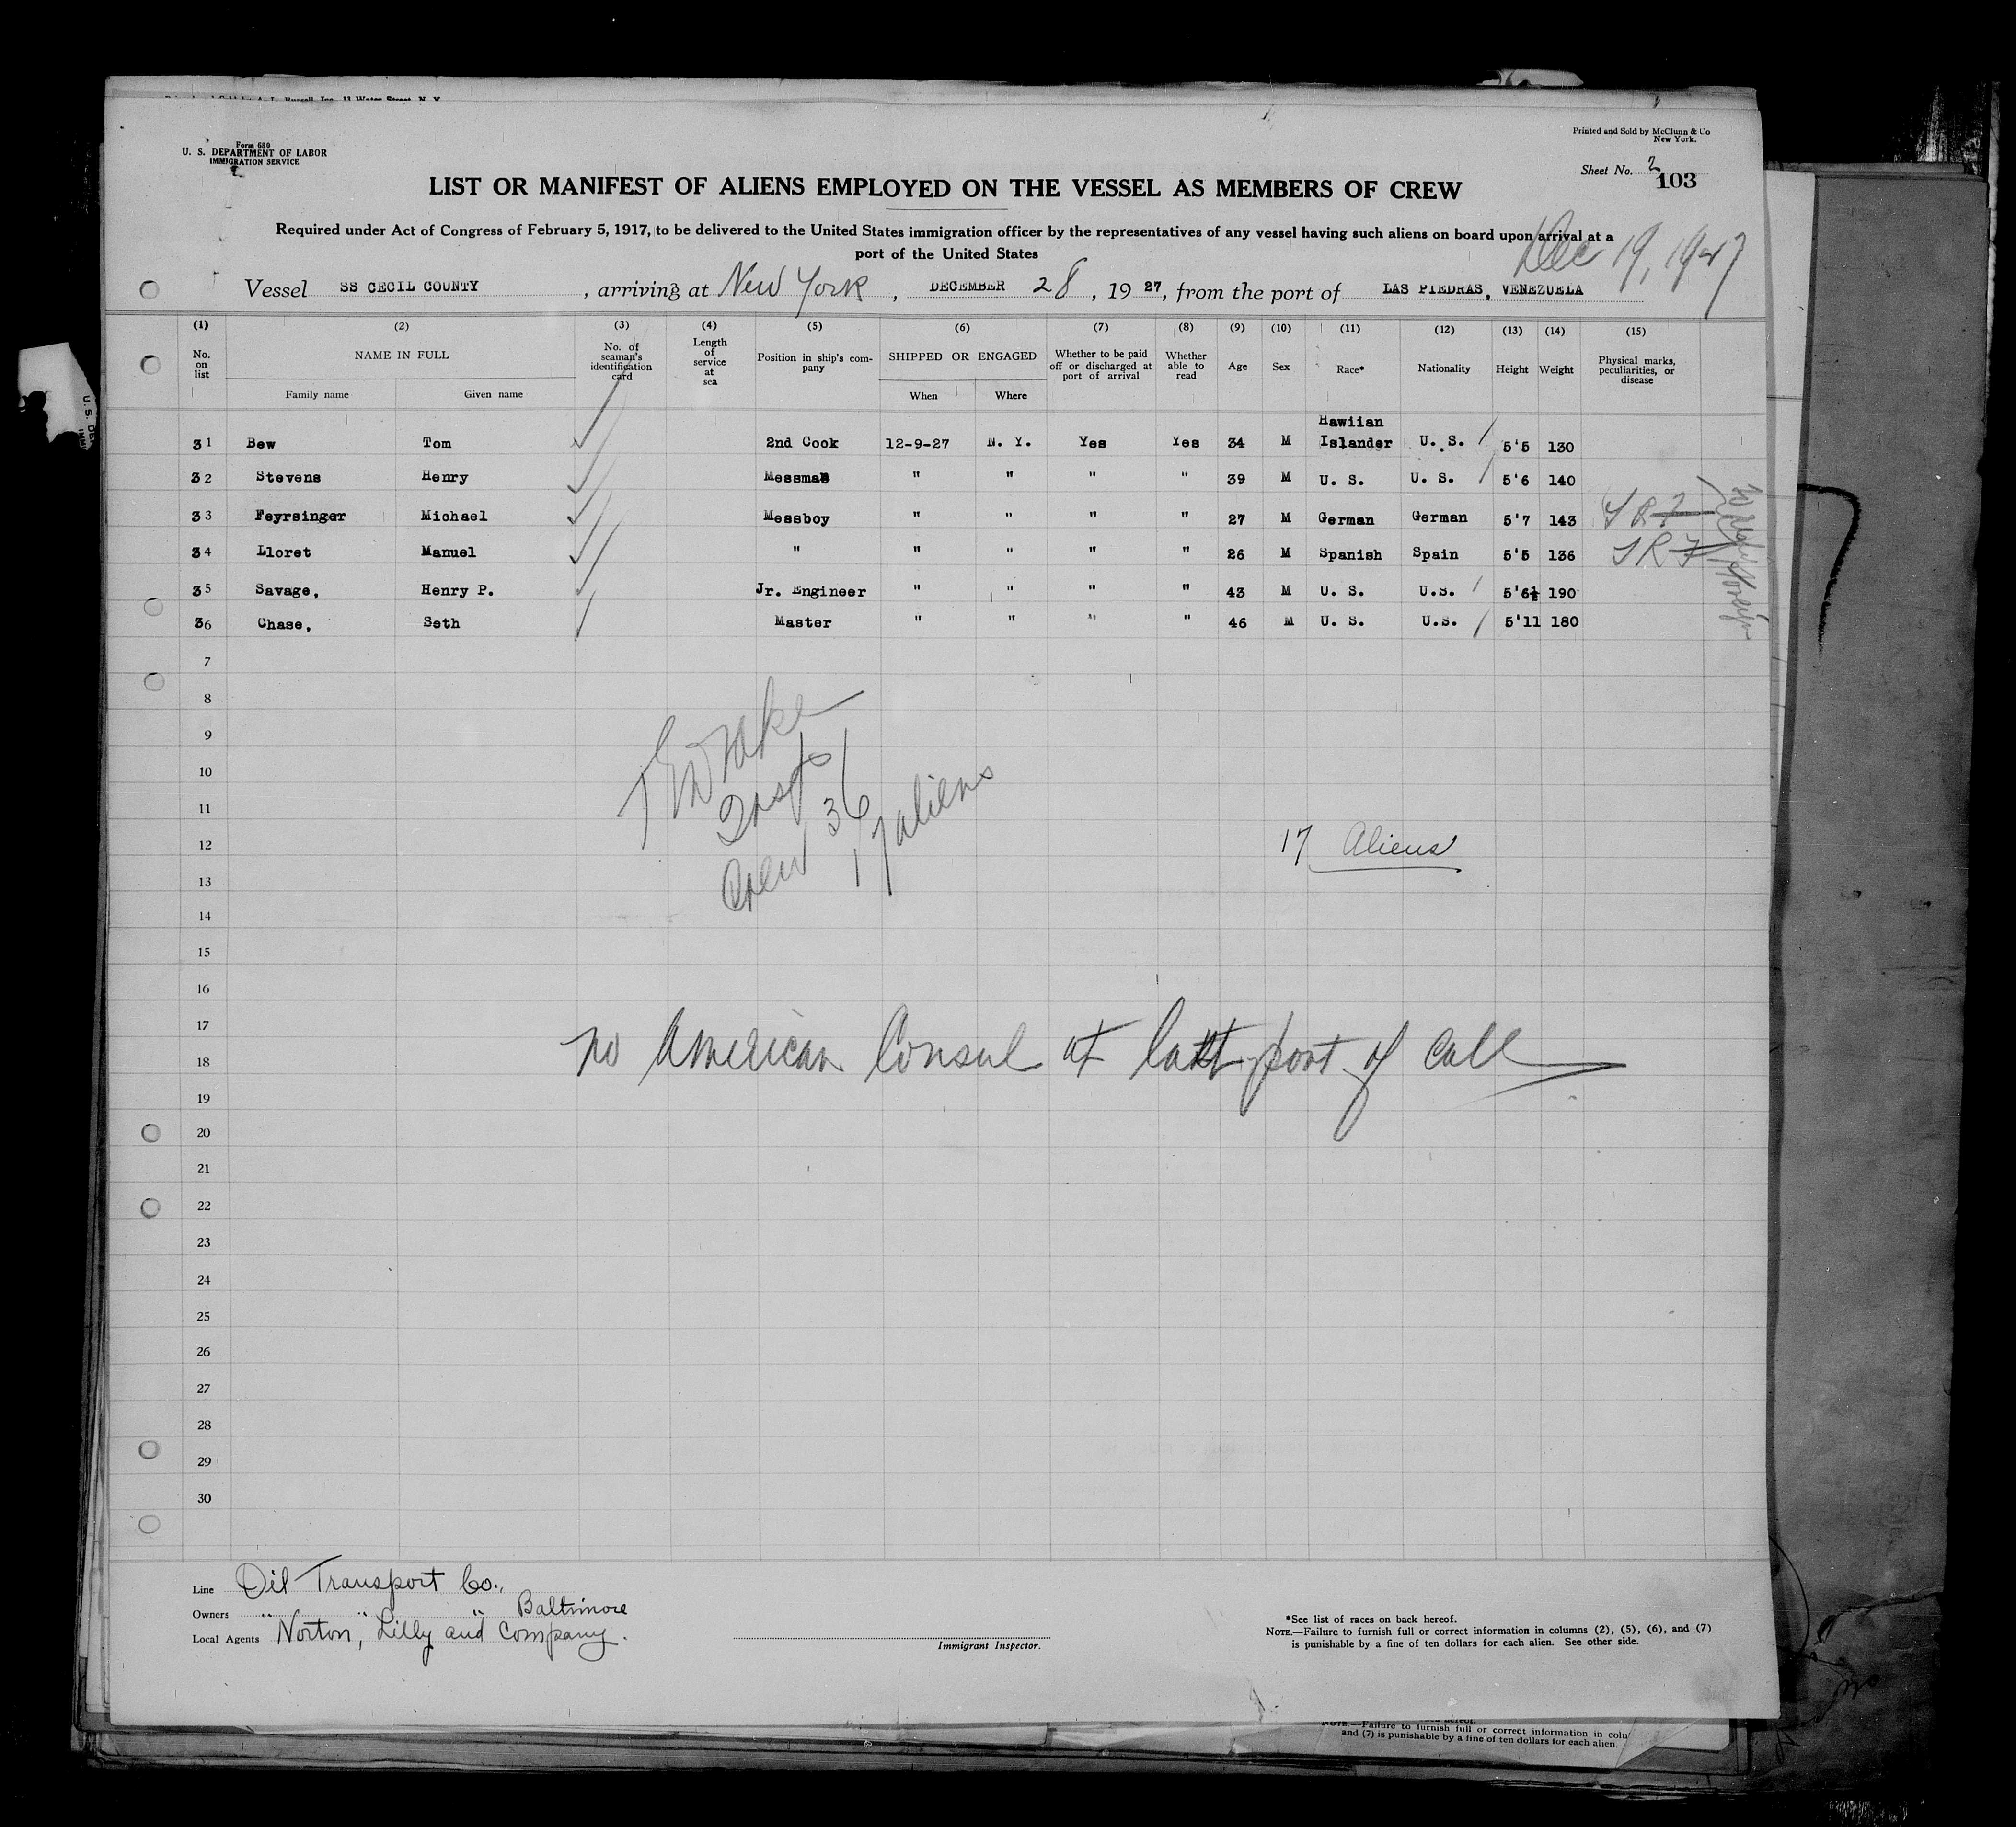 Form 680
U. S. DEPARTMENT OF LABOR
IMMIGRATION SERVICE
Printed and Sold by McClunn & Co
New York.
Sheet No. 2
103
LIST OR MANIFEST OF ALIENS EMPLOYED ON THE VESSEL AS MEMBERS OF CREW
Required under Act of Congress of February 5, 1917, to be delivered to the United States immigration officer by the representatives of any vessel having such aliens on board upon arrival at a
port of the United States
Dec 19, 1927
Vessel SS CECIL COUNTY , arriving at New York , DECEMBER 28 , 19 27, from the port of LAS PIEDRAS, VENEZUELA
(1) (2) (3) (4) (5) (6) (7) (8) (9) (10) (11) (12) (13) (14) (15)
No. on list NAME IN FULL No. of seaman's identification card Length of service at sea Position in ship's company SHIPPED OR ENGAGED Whether to be paid off or discharged at port of arrival Whether able to read Age Sex Race* Nationality Height Weight Physical marks, peculiarities, or disease
Family name Given name When Where
31 Bew Tom 2nd Cook 12-9-27 N. Y. Yes Yes 34 M Hawiian Islander U. S. 5'5 130
32 Stevens Henry Messman " " " " 39 M U. S. U. S. 5'6 140
33 Feyrsinger Michael Messboy " " " " 27 M German German 5'7 143
34 Lloret Manuel " " " " " 26 M Spanish Spain 5'5 136
35 Savage, Henry P. Jr. Engineer " " " " 43 M U. S. U.S. 5'6½ 190
36 Chase, Seth Master " " " " 46 M U. S. U.S. 5'11 180
7
8
9
10
11
12
13
14
15
16
17
18
19
20
21
22
23
24
25
26
27
28
29
30
Crew 36
17 aliens
17 Aliens
No American Consul at last port of call
Line Oil Transport Co.,
Owners " " " Baltimore
Local Agents Norton, Lilly and Company.
Immigrant Inspector.
*See list of races on back hereof.
NOTE.—Failure to furnish full or correct information in columns (2), (5), (6), and (7)
is punishable by a fine of ten dollars for each alien. See other side.
NOTE.—Failure to furnish full or correct information in colu
and (7) is punishable by a fine of ten dollars for each alien.